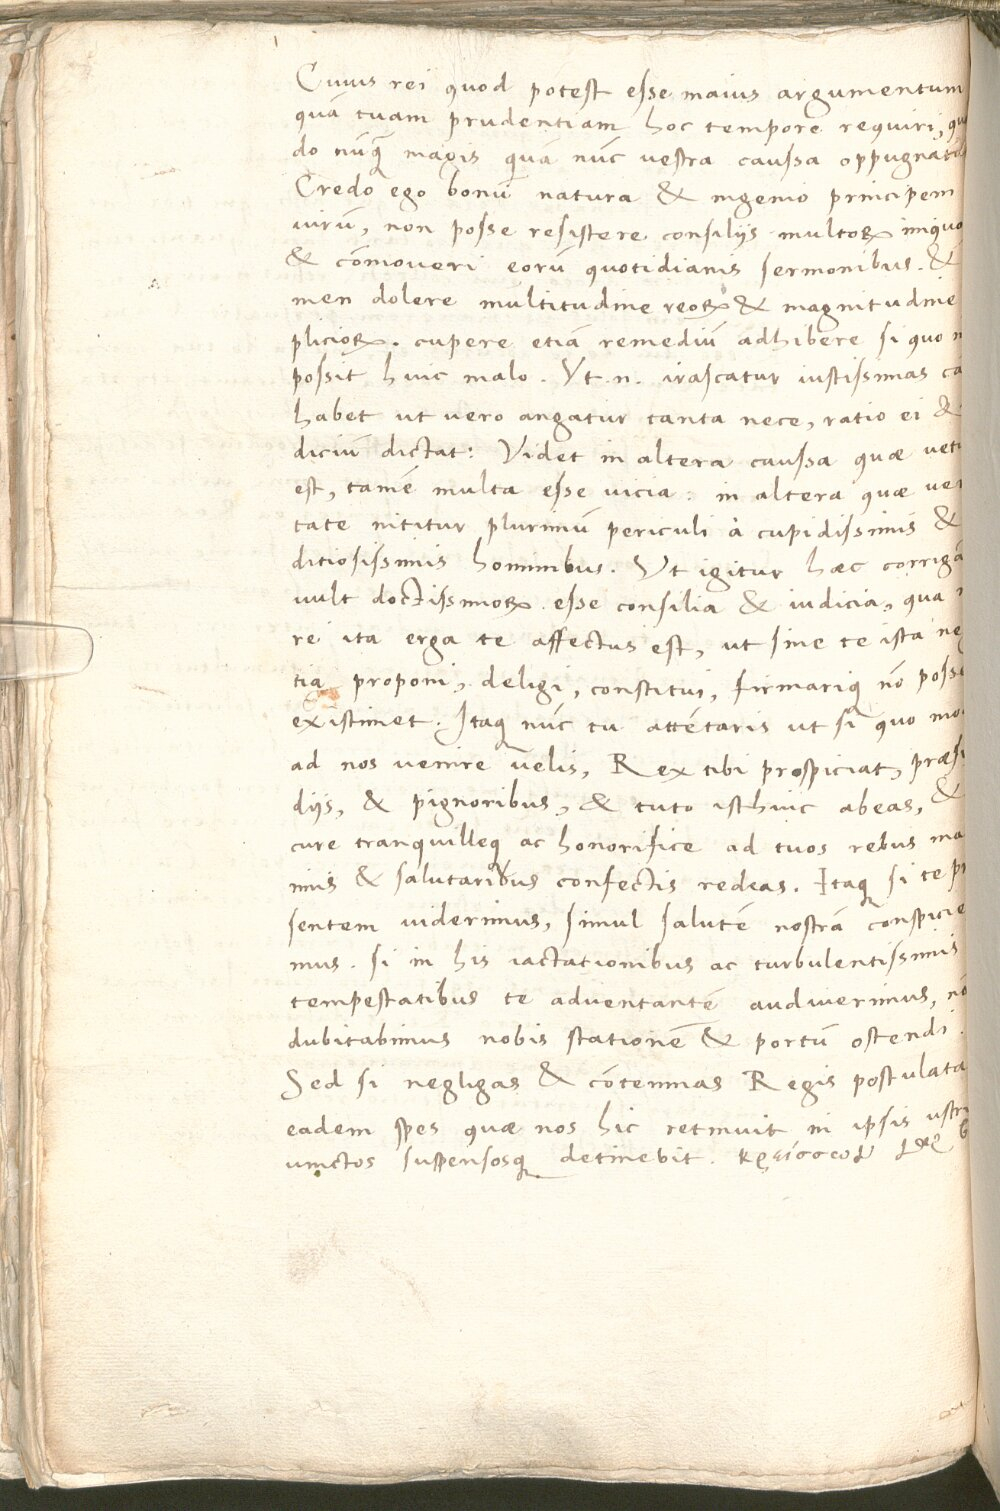 Cuius rei quod potest esse maius argumentum
quā tuam prudentiam hoc tempore requiri, qu
do nūq̃ magis quā nūc vestra caussa oppugnat
Credo ego bonū natura & ingenio principem
uirū, non posse resistere consilijs multoꝝ iniquo
& cōmoveri eorū quotidianis sermonibus. &
men dolere multitudine reoꝝ & magnitudine
plicioꝝ. cupere etiā remediū adhibere si quo
possit huic malo. Vt .n. irascatur iustissimas ca
habet ut vero angatur tanta nece, ratio ei &
diciū dictat: Videt in altera caussa quæ vet
est, tamē multa esse vicia: in altera quæ ver
tate nititur plurimū periculi à cupidissimis &
ditiosissimis hominibus. Vt igitur hæc corrigā
uult doctissimoꝝ esse consilia & iudicia, qua
re ita erga te affectus est, ut sine te ista neg
tia proponi, deligi, constitui, firmariq̃ nō posse
existimet. Itaq̃ nūc tu attētaris ut si quo mo
ad nos venire velis, Rex tibi prospiciat, præsi
dijs, & pignoribus, & tuto isthinc abeas, &
cure tranquilleq̃ ac honorifice ad tuos rebus ma
imis & salutaribus confectis redeas. Itaq̃ si te pr
sentem viderimus, simul salutē nostrā conspicie
mus. si in his iactationibus ac turbulentissimis
tempestatibus te adventantē audiverimus, nō
dubitabimus nobis stationē & portū ostendi.
Sed si negligas & cōtemnas Regis postulata
eadem spes quæ nos hic retinuit in ipsis ustri
unctos suspensosq̃ detinebit. κρείσσων